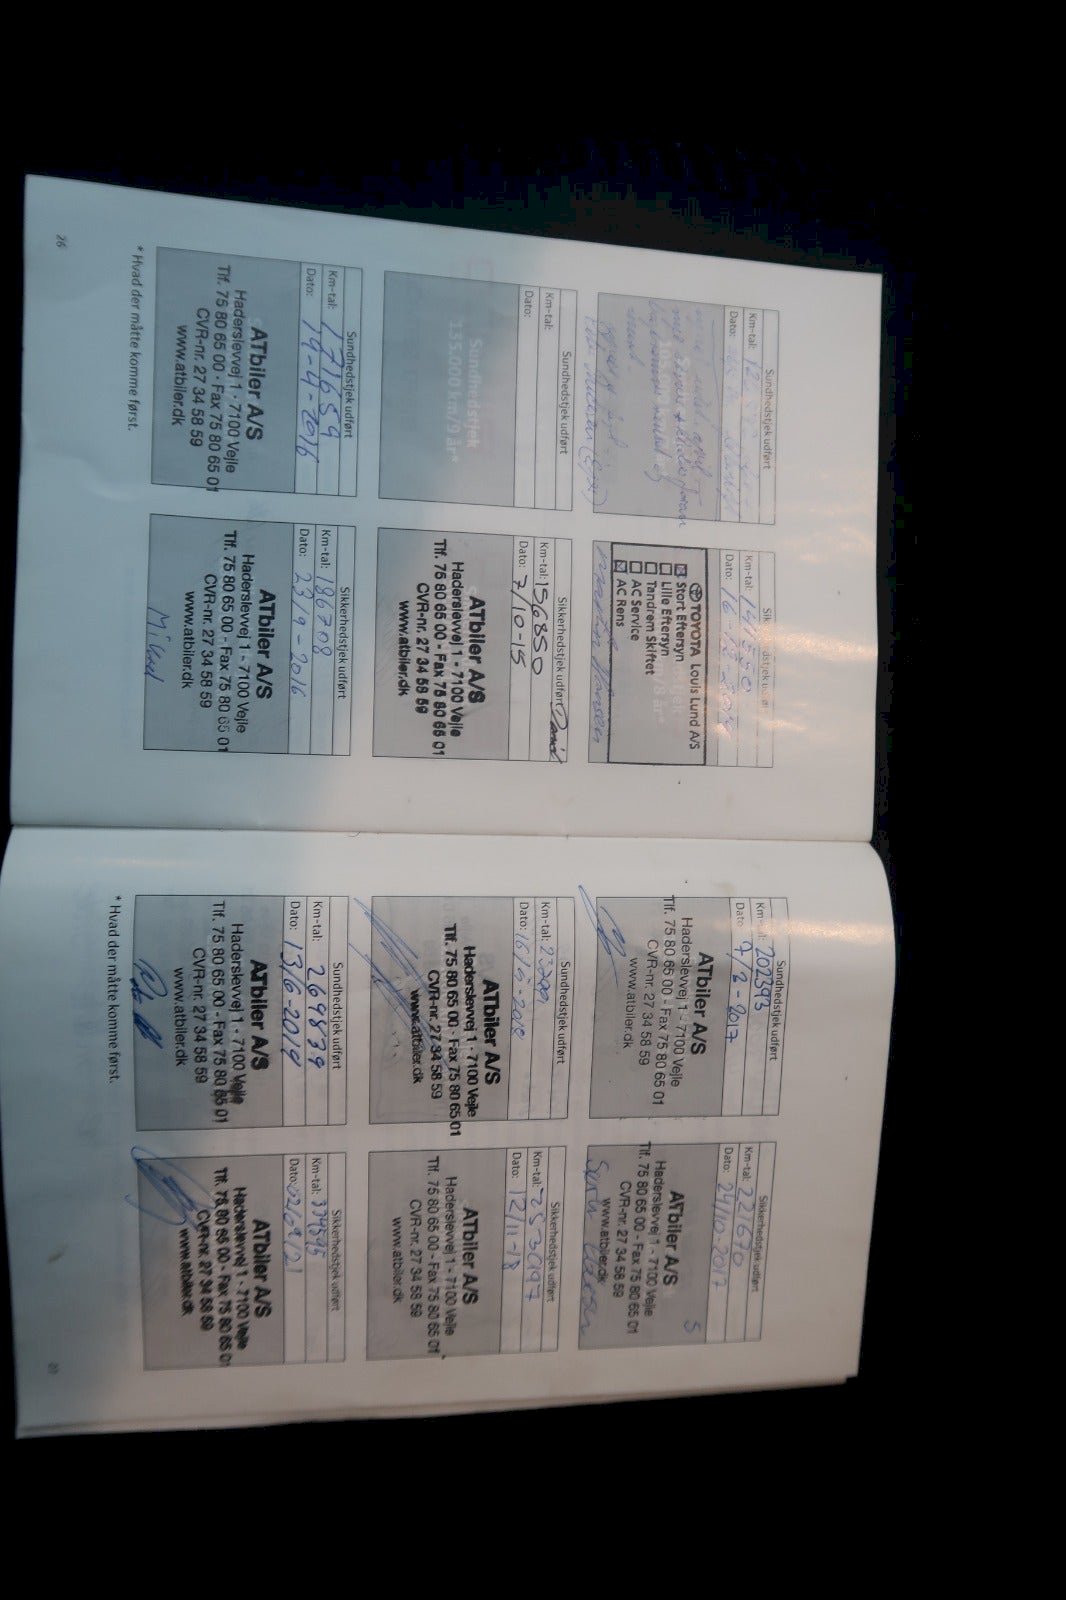 Sundhedstjek udført
Km-tal:
Dato:
Sikkerhedstjek udført
Km-tal: 141550
Dato: 16-12-2014
TOYOTA Louis Lund A/S
Stort Eftersyn
Lille Eftersyn
Tandrem Skiftet
AC Service
AC Rens
Sundhedstjek udført
Km-tal:
Dato:
Sundhedstjek
135.000 km/9 år*
Sikkerhedstjek udført
Km-tal: 156850
Dato: 7/10-15
ATbiler A/S
Haderslevvej 1 - 7100 Vejle
Tlf. 75 80 65 00 - Fax 75 80 65 01
CVR-nr. 27 34 58 59
www.atbiler.dk
Sundhedstjek udført
Km-tal: 171659
Dato: 19-4-2016
ATbiler A/S
Haderslevvej 1 - 7100 Vejle
Tlf. 75 80 65 00 - Fax 75 80 65 01
CVR-nr. 27 34 58 59
www.atbiler.dk
Sikkerhedstjek udført
Km-tal: 186708
Dato: 23/9-2016
ATbiler A/S
Haderslevvej 1 - 7100 Vejle
Tlf. 75 80 65 00 - Fax 75 80 65 01
CVR-nr. 27 34 58 59
www.atbiler.dk
* Hvad der måtte komme først.
26
Sundhedstjek udført
Km-tal: 202393
Dato: 7/2-2017
ATbiler A/S
Haderslevvej 1 - 7100 Vejle
Tlf. 75 80 65 00 - Fax 75 80 65 01
CVR-nr. 27 34 58 59
www.atbiler.dk
Sikkerhedstjek udført
Km-tal: 221670
Dato: 24/10-2017
ATbiler A/S
Haderslevvej 1 - 7100 Vejle
Tlf. 75 80 65 00 - Fax 75 80 65 01
CVR-nr. 27 34 58 59
www.atbiler.dk
Sundhedstjek udført
Km-tal:
Dato: 16/5-2018
ATbiler A/S
Haderslevvej 1 - 7100 Vejle
Tlf. 75 80 65 00 - Fax 75 80 65 01
CVR-nr. 27 34 58 59
www.atbiler.dk
Sikkerhedstjek udført
Km-tal: 253097
Dato: 12/11-18
ATbiler A/S
Haderslevvej 1 - 7100 Vejle
Tlf. 75 80 65 00 - Fax 75 80 65 01
CVR-nr. 27 34 58 59
www.atbiler.dk
Sundhedstjek udført
Km-tal: 269839
Dato: 13/6-2019
ATbiler A/S
Haderslevvej 1 - 7100 Vejle
Tlf. 75 80 65 00 - Fax 75 80 65 01
CVR-nr. 27 34 58 59
www.atbiler.dk
Sikkerhedstjek udført
Km-tal:
Dato:
ATbiler A/S
Haderslevvej 1 - 7100 Vejle
Tlf. 75 80 65 00 - Fax 75 80 65 01
CVR-nr. 27 34 58 59
www.atbiler.dk
* Hvad der måtte komme først.